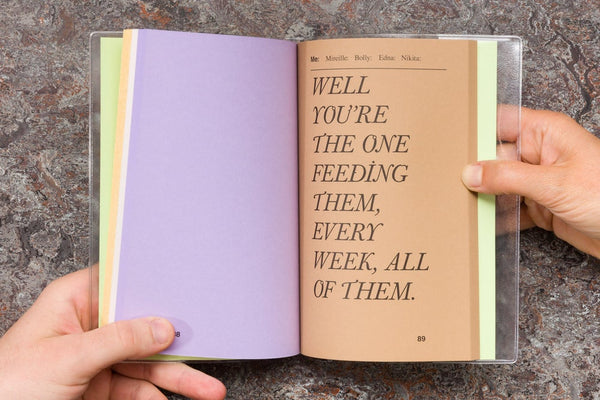 Me: Mireille: Bolly: Edna: Nikita:
WELL
YOU'RE
THE ONE
FEEDING
THEM,
EVERY
WEEK, ALL
OF THEM.
89